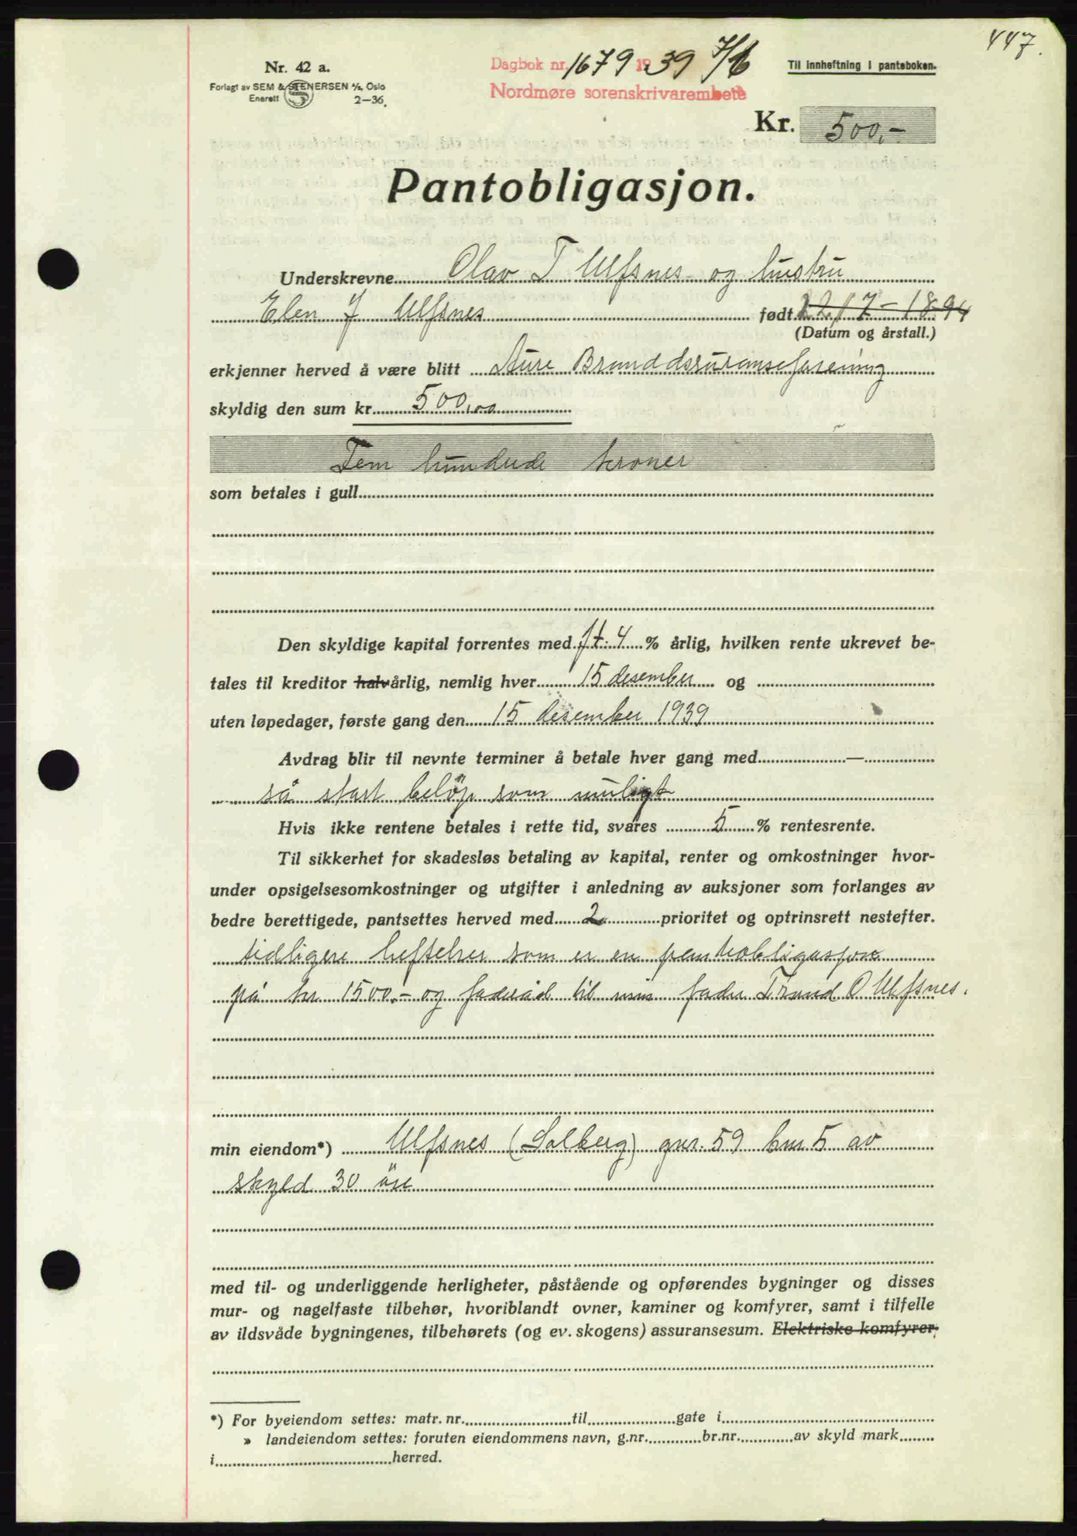 447.
Nr. 42 a.
Forlagt av SEM & STENERSEN A/S, Oslo
Enerett 2—36.
Dagbok nr. 1679 1939 7/6
Nordmøre sorenskrivarembete
Til innheftning i panteboken.
Kr. 500,-
Pantobligasjon.
Underskrevne Olav T Ulfsnes og hustru
Elen J Ulfsnes født 22/7-1894
(Datum og årstall.)
erkjenner herved å være blitt Aure Branddsuranseforening
skyldig den sum kr. 500,00
Fem hundrede kroner
som betales i gull
Den skyldige kapital forrentes med f.t. 4 % årlig, hvilken rente ukrevet be-
tales til kreditor halvårlig, nemlig hver 15 desember og
uten løpedager, første gang den 15 desember 1939
Avdrag blir til nevnte terminer å betale hver gang med —
så stort beløp som muligt
Hvis ikke rentene betales i rette tid, svares 5 % rentesrente.
Til sikkerhet for skadesløs betaling av kapital, renter og omkostninger hvor-
under opsigelsesomkostninger og utgifter i anledning av auksjoner som forlanges av
bedre berettigede, pantsettes herved med 2 prioritet og optrinsrett nestefter.
tidligere heftelser som er en pantobligasjon
på kr 1500.- og faderåd til min fader Trond O Ulfsnes.
min eiendom*) Ulfsnes (Solberg) gnr. 59 bnr 5 av
skyld 30 øre
med til- og underliggende herligheter, påstående og opførendes bygninger og disses
mur- og nagelfaste tilbehør, hvoriblandt ovner, kaminer og komfyrer, samt i tilfelle
av ildsvåde bygningenes, tilbehørets (og ev. skogens) assuransesum. Elektriske komfyrer,
*) For byeiendom settes: matr. nr. til gate i
» landeiendom settes: foruten eiendommens navn, g.nr. br.nr. av skyld mark
i herred.